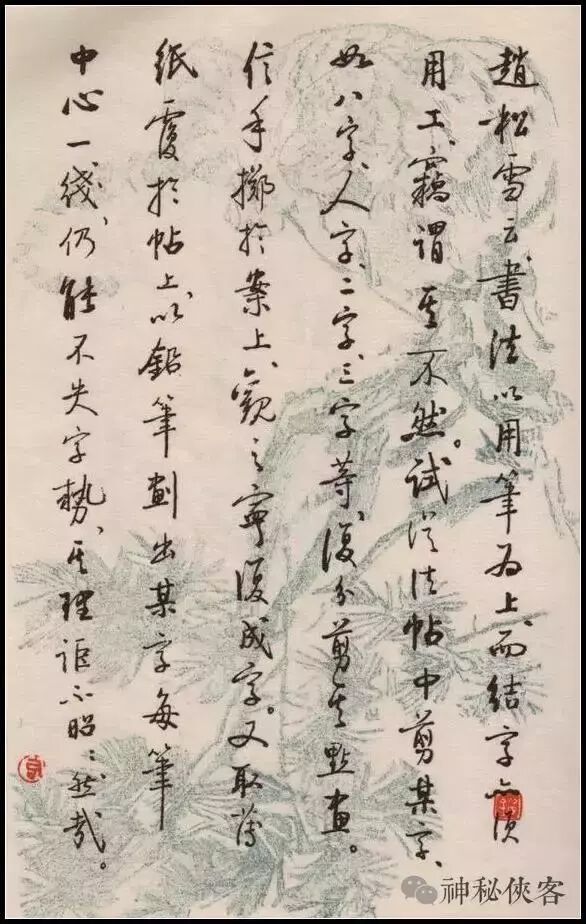 趙松雪云、書法以用筆為上、而結字亦須
用工、竊謂其不然。試從法帖中剪某字、
如八字、人字、二字、三字等、復分剪其點畫。
信手擲於案上、觀之寧復成字。又取薄
紙覆於帖上、以鉛筆劃出某字每筆
中心一綫、仍能不失字勢、其理詎不昭〻然哉。
神秘俠客